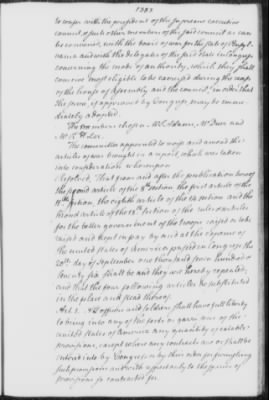 1383
to confer with the president of the supreme executive
council, & such other members of the said council as can
be convened, with the board of war for the state of Pennsyl-
vania and with the delegates of the said State in Congress
concerning the mode of authority, which they shall
conceive most eligible to be exercised during the recess
of the house of Assembly and the council, in order that
the same, if approved by Congress, may be imme-
diately adopted.
The members chosen Mr S. Adams, Mr Duer and
Mr R. H. Lee.
The committee appointed to revise and amend the
articles of war brought in a report, which was taken
into consideration whereupon
Resolved, That from and after the publication hereof
the second article of the 8th section the first article of the
11th section, the eighth article of the 14 section and the
second article of the 18th section of the rules & articles
for the better government of the troops raised or to be
raised and kept in pay by and at the expence of
the united states of America passed in Congress the
20th day of September one thousand seven hundred &
seventy six shall be and they are hereby repealed,
and that the four following articles be substituted
in the place and stead thereof.
Art. 1. All officers and soldiers shall have full liberty
to bring into any of the forts or garrisons of the
united states of America any quantity of eatable
provisions, except where any contracts are or shall be
entered into by Congress or by their order for furnishing
such provisions and with respect only to the species of
provisions so contracted for.